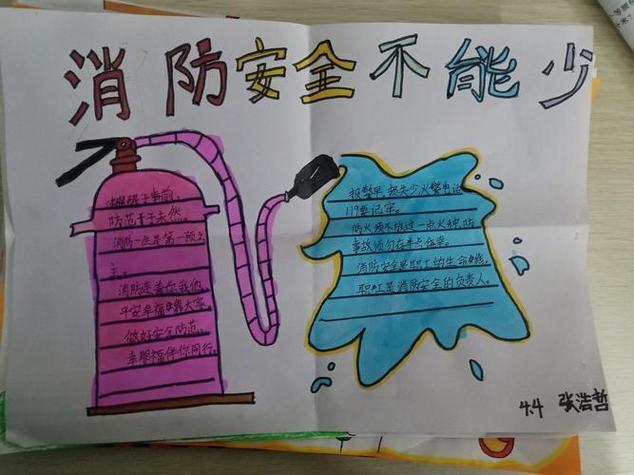 消防安全不能少
防范于未然。
消防一些是第一顾主
主。
消防连着你我他
平安幸福靠大家。
做好安全防范
幸福伴你同行。
报警早 损失少火警电话
119要记牢。
防火须不放过一点火种,防
事故须勿存半点侥幸。
消防安全是职工的生命线
职工是消防安全的负责人。
4.4 张浩哲